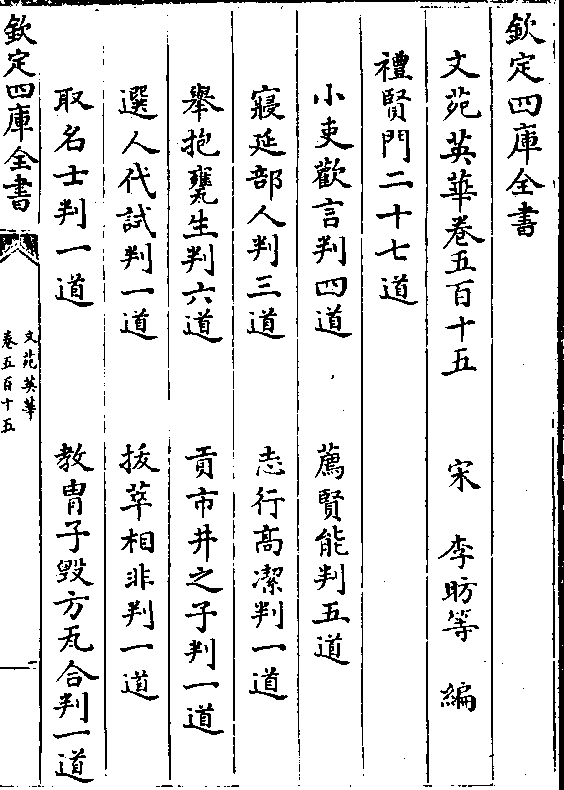 欽定四庫全書
文苑英華卷五百十五
宋 李昉等 編
禮賢門二十七道
小吏歡言判四道 薦賢能判五道
寢延部人判三道 志行高潔判一道
舉抱甕生判六道 貢市井之子判一道
選人代試判一道 拔萃相非判一道
取名士判一道 教胄子毀方瓦合判一道
欽定四庫全書
文苑英華
卷五百十五